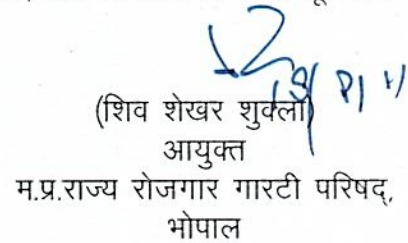 (शिव शेखर शुक्ला)
आयुक्त
म.प्र.राज्य रोजगार गारटी परिषद्,
भोपाल